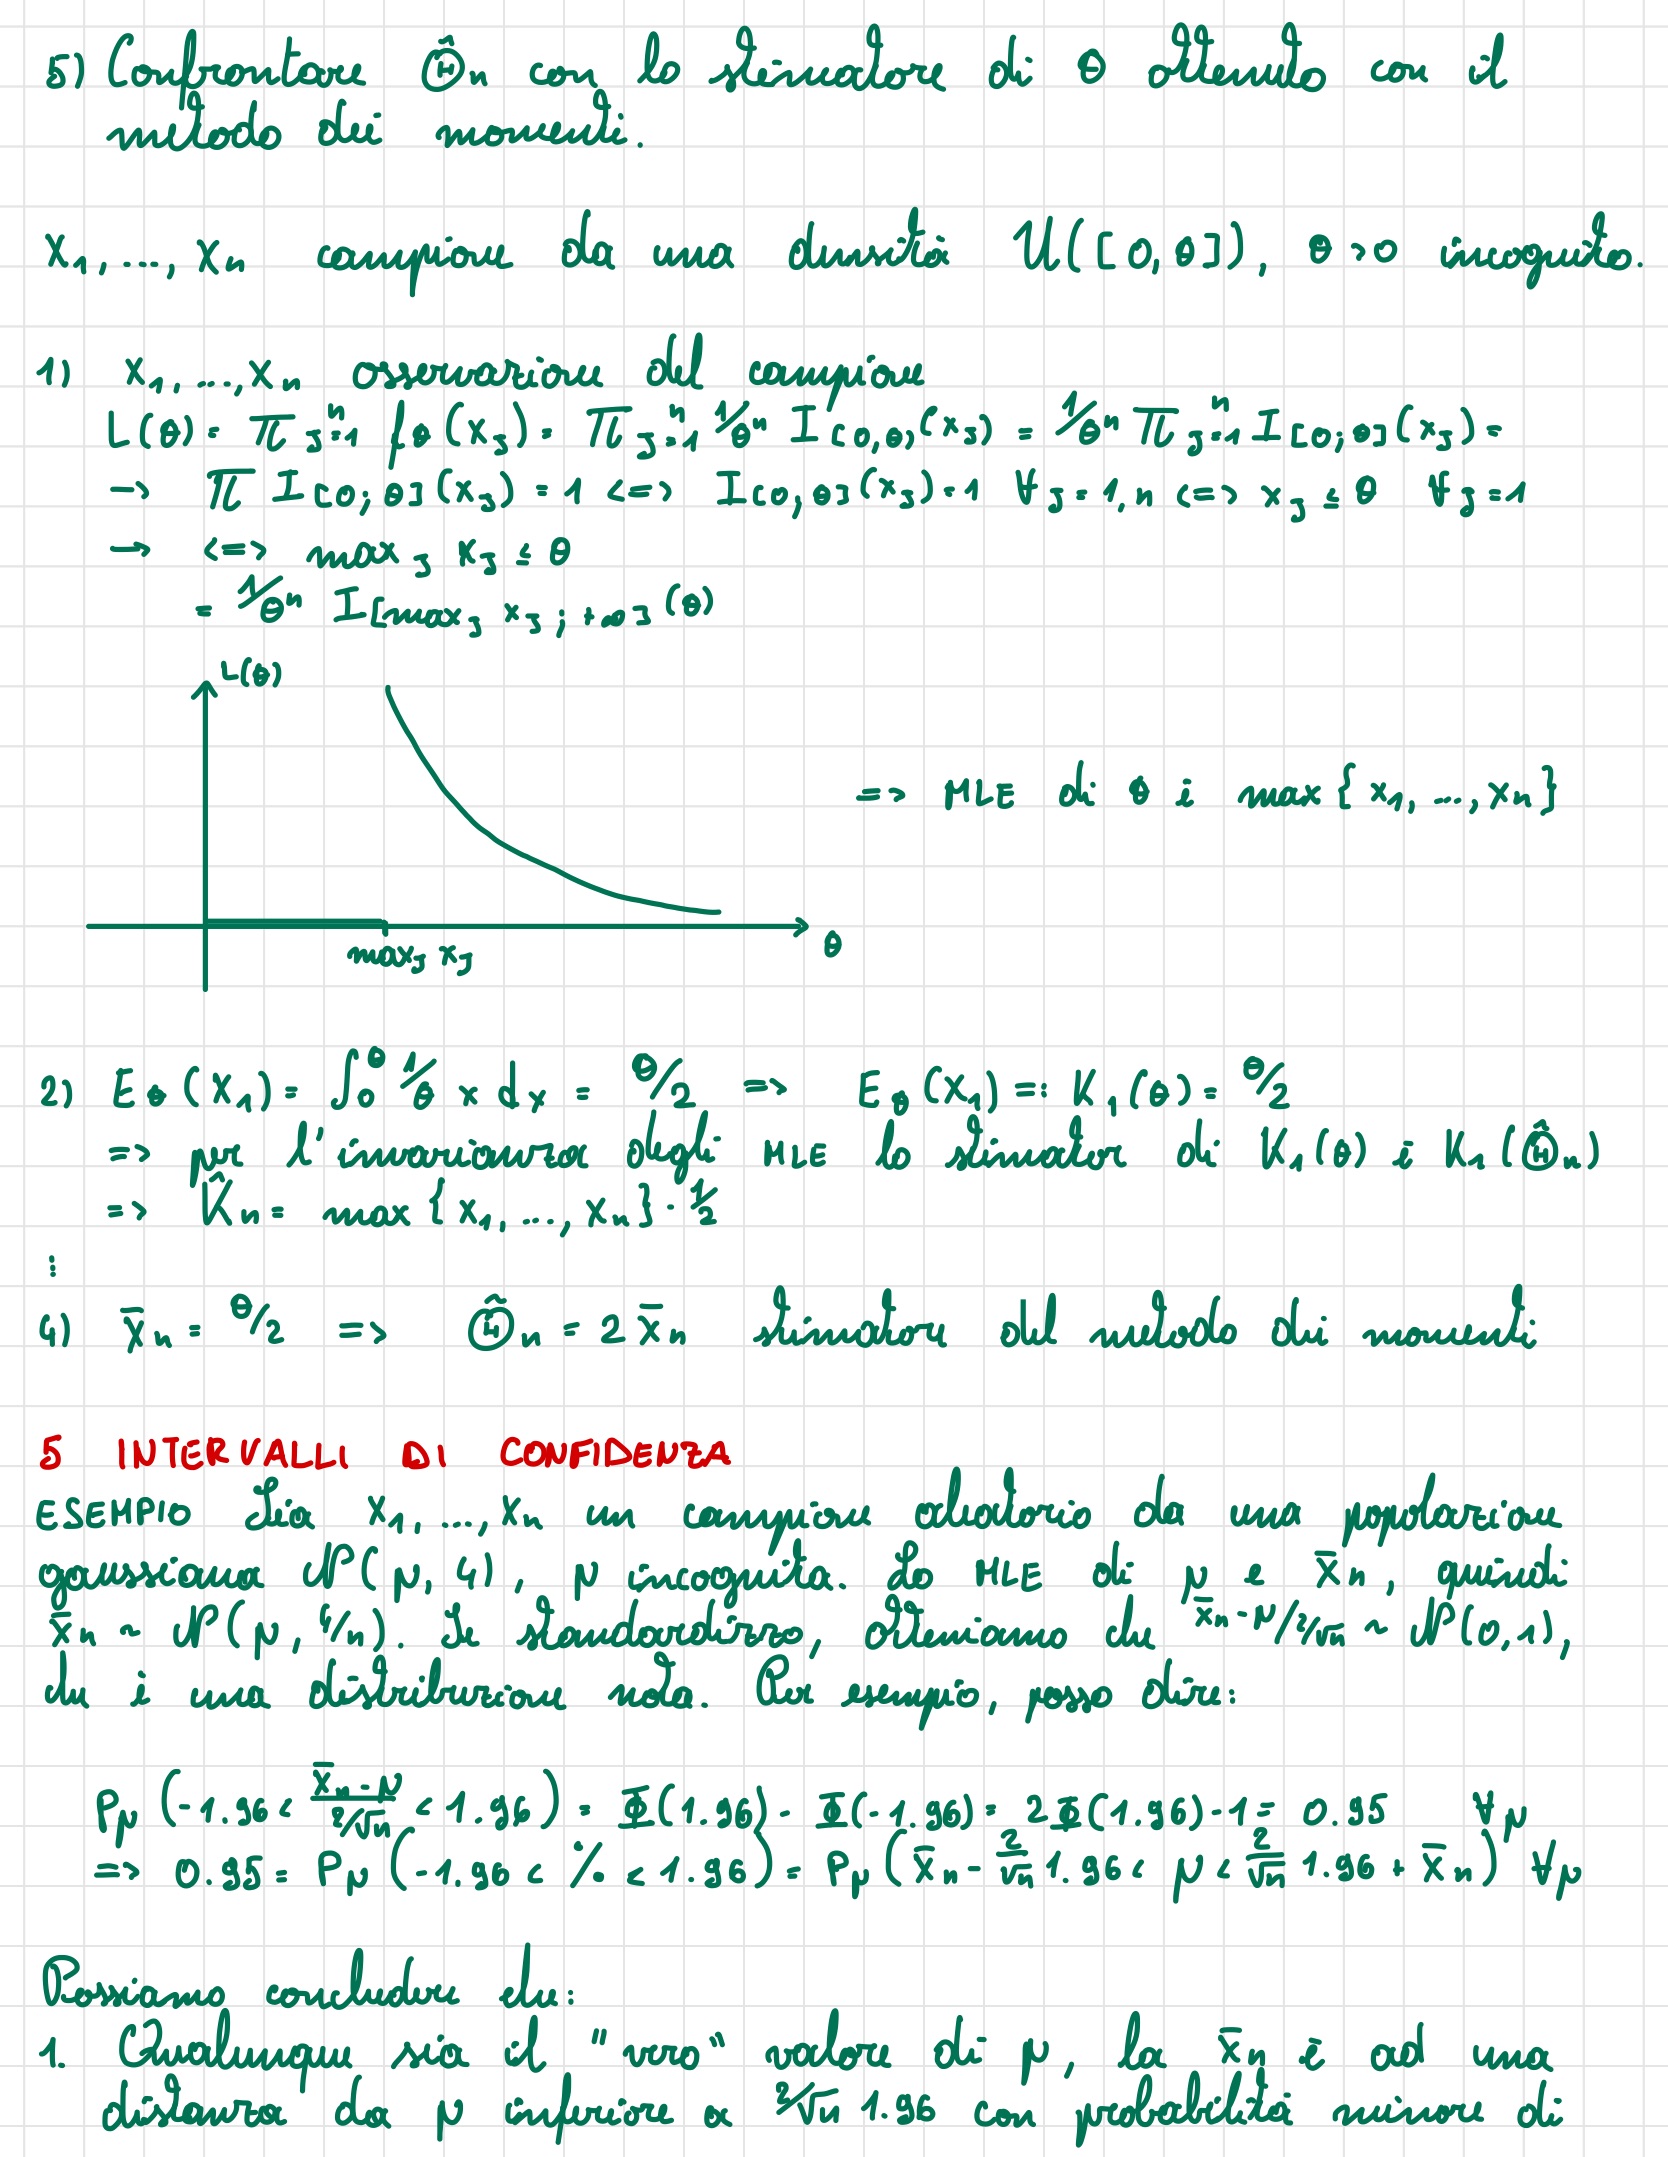 5) Confrontare Θ̂n con lo stimatore di θ ottenuto con il
metodo dei momenti.
X1, ..., Xn campione da una densità U([0,θ]), θ>0 incognito.
1) x1, ..., xn osservazione del campione
L(θ) = π j=1^n fθ(xj) = π j=1^n 1/θ^n I[0,θ)(xj) = 1/θ^n π j=1^n I[0;θ](xj) =
→ π I[0;θ](xj) = 1 <=> I[0,θ](xj) = 1 ∀j=1,n <=> xj ≤ θ ∀j=1
→ <=> maxj xj ≤ θ
= 1/θ^n I[maxj xj ; +∞](θ)
L(θ)
=> MLE di θ è max{x1, ..., xn}
maxj xj
θ
2) Eθ(X1) = ∫0^θ 1/θ x dx = θ/2 => Eθ(X1) =: K1(θ) = θ/2
=> per l'invarianza degli MLE lo stimator di K1(θ) è K1(Θ̂n)
=> K̂n = max{x1, ..., xn} · 1/2
⋮
4) x̄n = θ/2 => Θ̃n = 2x̄n stimatore del metodo dei momenti
5 INTERVALLI DI CONFIDENZA
ESEMPIO Sia X1, ..., Xn un campione aleatorio da una popolazione
gaussiana N(μ, 4), μ incognita. Lo MLE di μ e x̄n, quindi
x̄n ~ N(μ, 4/n). Se standardizzo, otteniamo che x̄n-μ/2/√n ~ N(0,1),
che è una distribuzione nota. Per esempio, posso dire:
Pμ(-1.96 < x̄n-μ / 2/√n < 1.96) = Φ(1.96) - Φ(-1.96) = 2Φ(1.96)-1 = 0.95 ∀μ
=> 0.95 = Pμ(-1.96 < ./. < 1.96) = Pμ(x̄n - 2/√n 1.96 < μ < 2/√n 1.96 + x̄n) ∀μ
Possiamo concludere che:
1. Qualunque sia il "vero" valore di μ, la x̄n è ad una
distanza da μ inferiore a 2/√n 1.96 con probabilità minore di